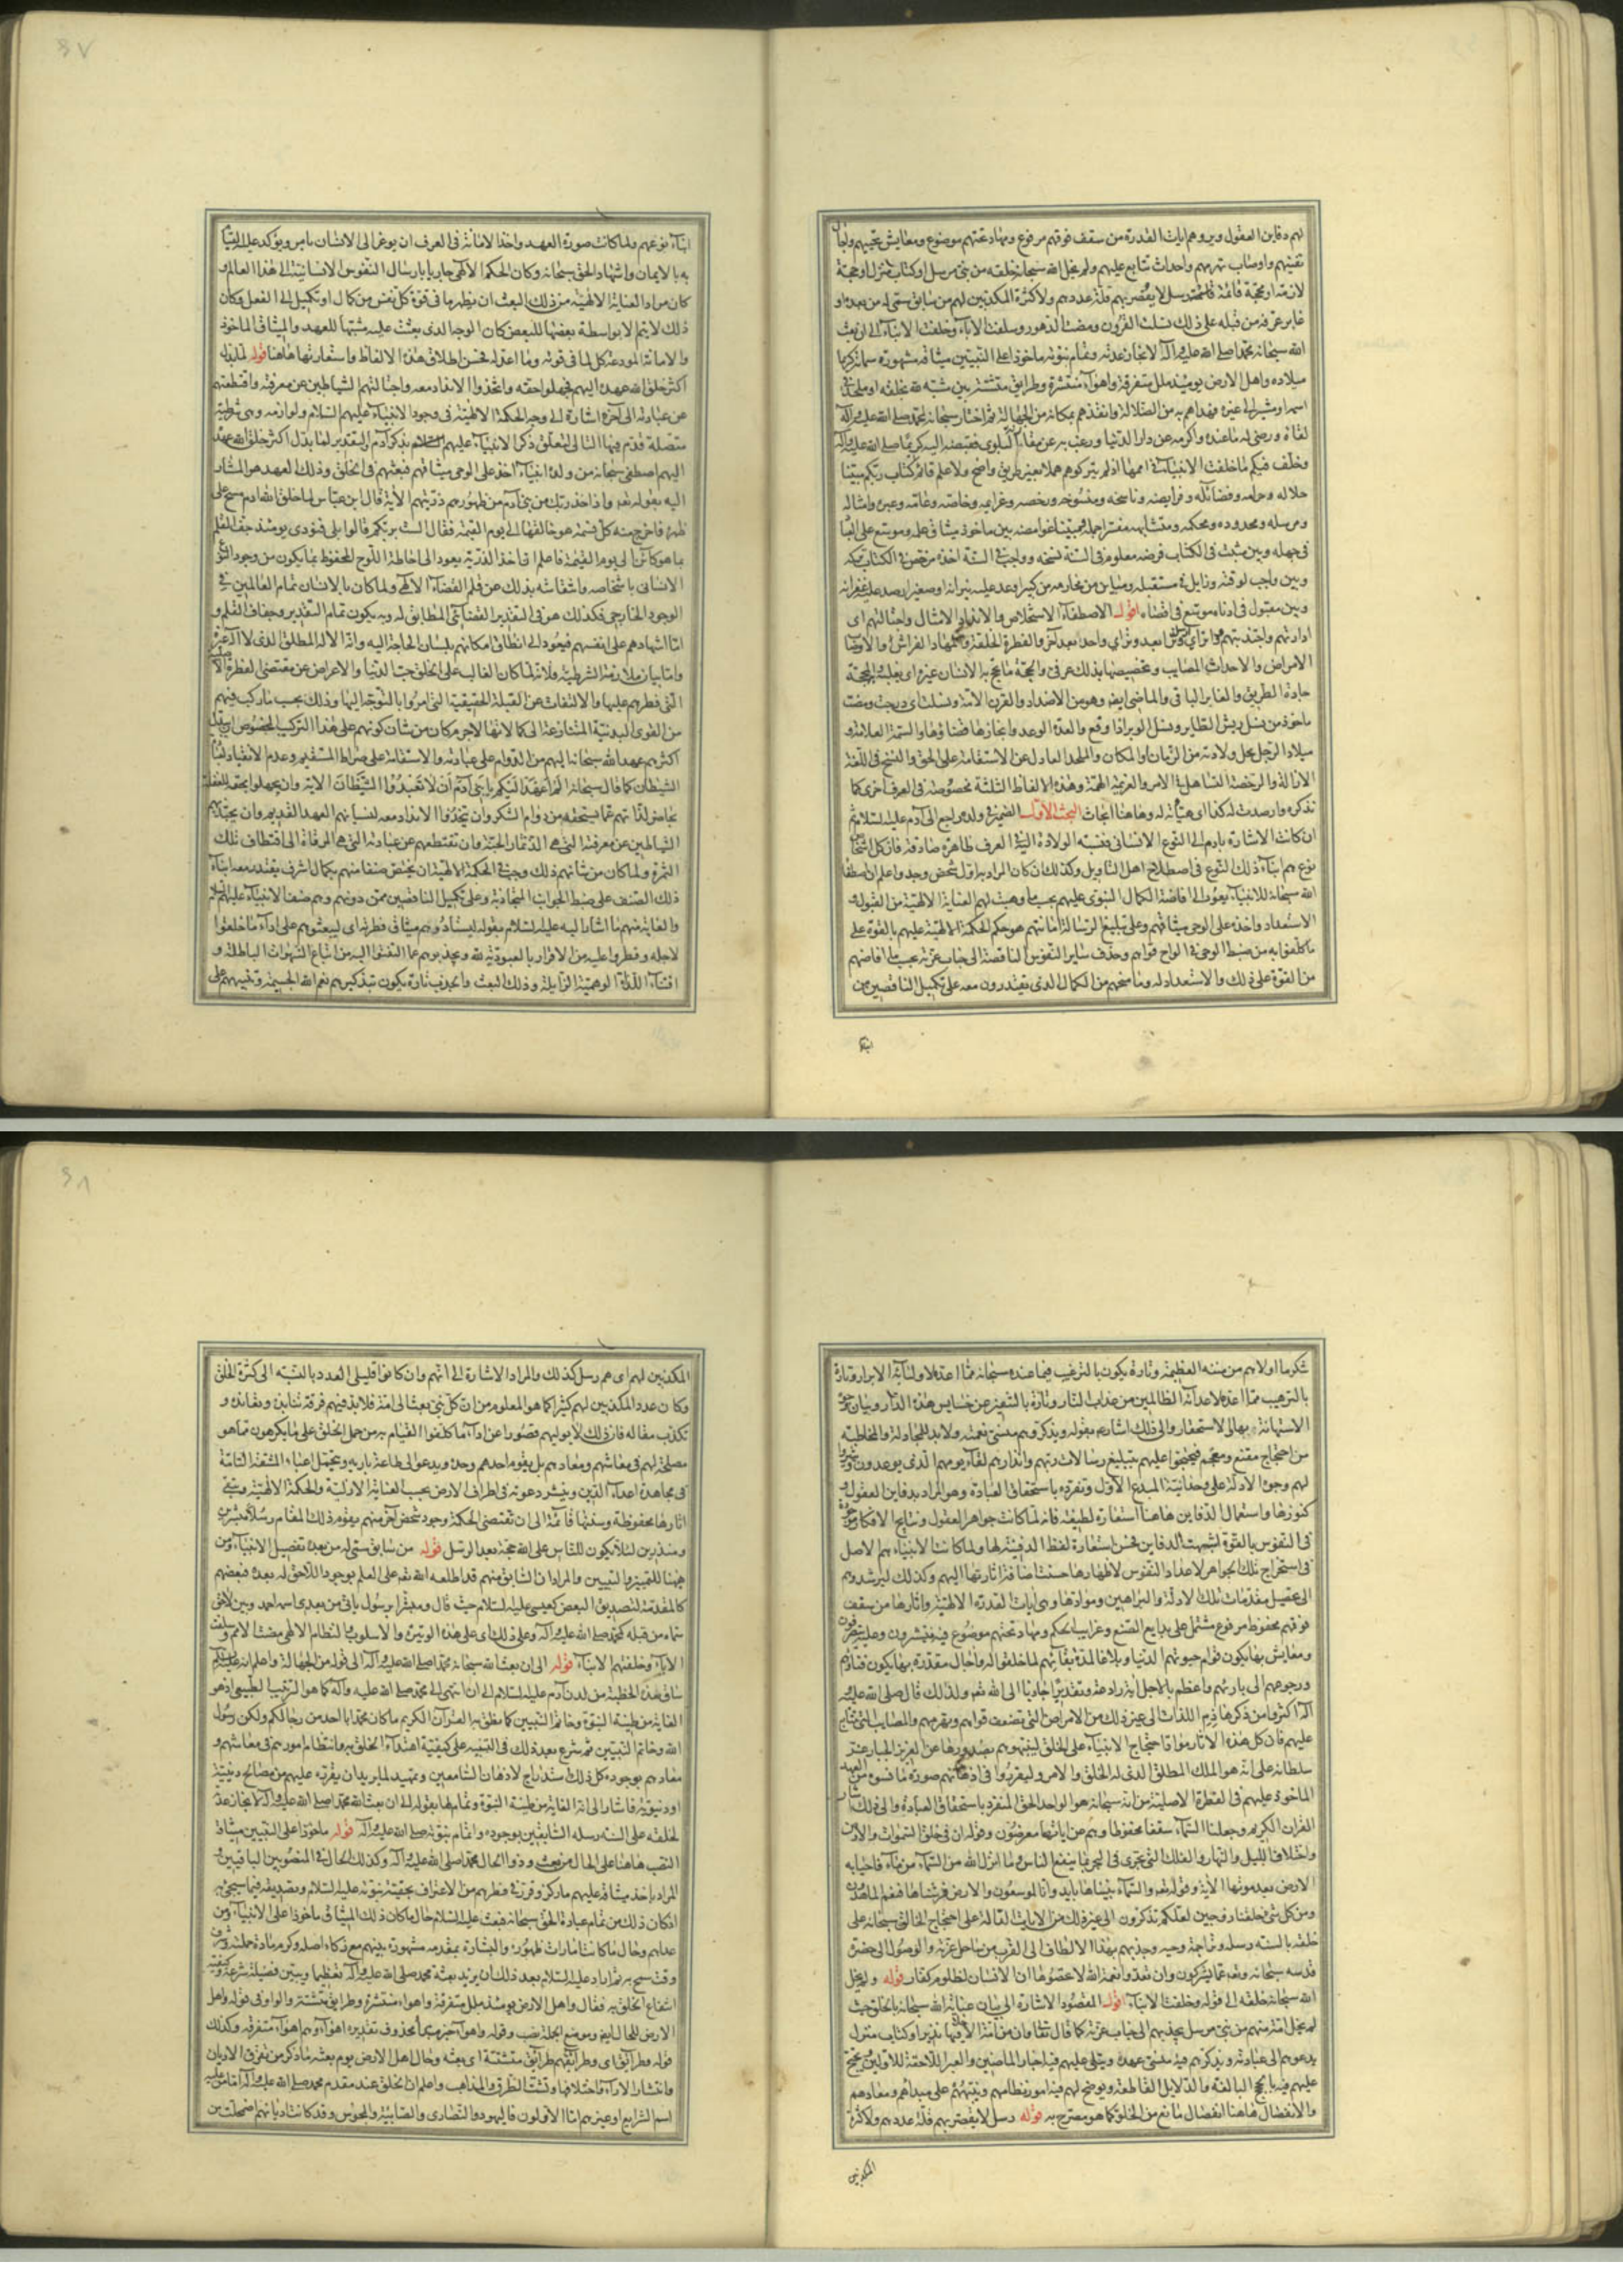 لهم دفاين العقول ويروهم ايات القدرة من سقف فوقهم مرفوع ومهاد تحتهم موضوع ومعايش تحييهم واجال
تفنيهم واوصاب تهرمهم واحداث تتابع عليهم ولم يخل الله سبحانه خلقه من نبي مرسل او كتاب منزل او حجة
لازمة او محجة قائمة رسل لا يقصر بهم قلة عددهم ولا كثرة المكذبين لهم من سابق سمى له من بعده او
غابر عرفه من قبله على ذلك نسلت القرون ومضت الدهور وسلفت الاباء وخلفت الابناء الى ان بعث
الله سبحانه محمدا صلى الله عليه وآله لانجاز عدته وتمام نبوته ماخوذا على النبيين ميثاقه مشهورة سماته كريما
ميلاده واهل الارض يومئذ ملل متفرقة واهواء منتشرة وطرايق متشتتة بين مشبه لله بخلقه او ملحد في
اسمه او مشير الى غيره فهداهم به من الضلالة وانقذهم بمكانه من الجهالة ثم اختار سبحانه لمحمد صلى الله عليه وآله
لقاءه ورضى له ما عنده واكرمه عن دار الدنيا ورغب به عن مقام البلوى فقبضه اليه كريما صلى الله عليه وآله
وخلف فيكم ما خلفت الانبياء في اممها اذ لم يتركوهم هملا بغير طريق واضح ولا علم قائم كتاب ربكم مبينا
حلاله وحرامه وفضائله وفرايضه وناسخه ومنسوخه ورخصه وعزايمه وخاصه وعامه وعبره وامثاله
ومرسله ومحدوده ومحكمه ومتشابهه مفسرا جمله مبينا غوامضه بين ماخوذ ميثاق علمه وموسع على العباد
في جهله وبين مثبت في الكتاب فرضه معلوم في السنة نسخه وواجب في السنة اخذه مرخص في الكتاب تركه
وبين واجب لوقته وزايل في مستقبله ومباين بين محارمه من كبير اوعد عليه نيرانه او صغير ارصد له غفرانه
وبين مقبول في ادناه موسع في اقصاه اقول الاصطفاء الاستخلاص والانداد الامثال واجتالتهم اي
ادارتهم
الامراض والاحداث المصايب وتخصيصها بذلك عرفي والحجة ما يحج به الانسان غيره اي يغلبه والمحجة
جادة الطريق والغابر الباقي والماضي ايضا وهو من الاضداد والقرن الامة ونسلت اي درجت ومضت
ماخوذ من نسل ريش الطاير ونسل الوبر اذا وقع والعدة الوعد وانجازها قضاؤها والسمة العلامة و
ميلاد الرجل محل ولادته من الزمان والمكان والملحد العادل عن الاستقامة على الحق والنسخ في اللغة
الازالة والرخصة التساهل في الامر والعزيمة الهمة وهذه الالفاظ الثلثة مخصوصة في العرف اخرى كما
نذكره وارصدت له كذا اي هيأته له وهاهنا ابحاث البحث الاول الضمير في ولده راجع الى آدم عليه السلام ثم
ان كانت الاشارة بادم الى النوع الانساني فنسبة الولادة اليه في العرف ظاهرة صادقة فان كل اشخاص
نوع هم ابناء ذلك النوع في اصطلاح اهل التاويل وكذلك ان كان المراد به اول شخص وجد واعلم ان اصطفاء
الله سبحانه للانبياء يعود الى افاضة الكمال النبوي عليهم بحسب ما وهبت لهم العناية الالهية من القبول و
الاستعداد واخذه على الوحي ميثاقهم وعلى تبليغ الرسالة امانتهم هو حكم الحكمة الالهية عليهم بالقوة على
ما كلفوا به من ضبط الوحي في الواح قواهم وجذب ساير النفوس الناقصة الى جناب عزته بحسب ما افاضهم
من القوة على ذلك والاستعداد له وما منحهم من الكمال الذي يقتدرون معه على تكميل الناقصين من
ابناء
ابناء نوعهم ولما كانت صورة العهد واخذ الامانة في العرف ان يوعز الى الانسان بامر ويؤكد عليه القيام
به بالايمان واشهاد الحق سبحانه وكان الحكم الالهي جاريا بارسال النفوس الانسانية الى هذا العالم و
كان مراد العناية الالهية من ذلك البعث ان يظهر ما في قوة كل نفس من كمال او تكميل الى الفعل وكان
ذلك لا يتم الا بواسطة بعضها للبعض كان الوجه الذي بعثت عليه مشبها للعهد والميثاق الماخوذ
والامانة المودعة كل لما في قوته وما اعد له فحسن اطلاق هذه الالفاظ واستعارتها هاهنا قوله لما بدل
اكثر خلق الله عهده اليهم فجهلوا حقه واتخذوا الانداد معه واجتالتهم الشياطين عن معرفته واقتطعتهم
عن عبادته الى آخره اشارة الى وجه الحكمة الالهية في وجود الانبياء عليهم السلام ولوازمه وهي شرطية
متصلة قدم فيها التالي لتعلق ذكر الانبياء عليهم السلام بذكر آدم والتقدير لما بدل اكثر خلق الله عهده
اليهم اصطفى سبحانه من ولده انبياء اخذ على الوحي ميثاقهم فبعثهم في الخلق وذلك العهد هو المشار
اليه بقوله تعم واذ اخذ ربك من بني آدم من ظهورهم ذريتهم الاية قال ابن عباس لما خلق الله ادم مسح على
ظهره فاخرج منه كل نسمة هو خالقها الى يوم القيمة فقال الست بربكم قالوا بلى فنودي يومئذ جف القلم
بما هو كائن الى يوم القيمة فاعلم ان اخذ الذرية يعود الى احاطة اللوح المحفوظ بما يكون من وجود النوع
الانساني باشخاصه وانتقاشه بذلك عن قلم القضاء الالهي ولما كان بالانسان تمام العالمين في
الوجود الخارجي فكذلك هو في التقدير القضائي المطابق له وبه يكون تمام التقدير وجفاف القلم و
اما اشهادهم على انفسهم فيعود الى انطاق امكانهم بلسان الحاجة اليه وانه الاله المطلق الذي لا اله غيره
واما بيان ملازمة الشرطية فلانه لما كان الغالب على الخلق حب الدنيا والاعراض عن مقتضى الفطرة الاصلية
التي فطرهم عليها والالتفات عن القبلة الحقيقية التي امروا بالتوجه اليها وذلك بحسب ما ركب فيهم
من القوى البدنية المتنازعة الى كمالاتها لا جرم كان من شان كونهم على هذا التركيب المخصوص ان يبدل
اكثرهم عهد الله سبحانه اليهم من الدوام على عبادته والاستقامة على صراطه المستقيم وعدم الانقياد لعبادة
الشيطان كما قال سبحانه الم اعهد اليكم يا بني آدم ان لا تعبدوا الشيطان الاية وان يجهلوا حقه للغفلة
بحاضر لذاتهم عما يستحقه من دوام الشكر وان يتخذوا الانداد معه لنسيانهم العهد القديم وان يجتالهم
الشياطين عن معرفته التي هي الذ ثمار الجنة وان تقتطعهم عن عبادته التي هي المرقاة الى اقتطاف تلك
الثمرة ولما كان من شانهم ذلك وجب في الحكمة الالهية ان يختص صنفا منهم بكمال اشرف يقتدر معه ابناء
ذلك الصنف على ضبط الجوانب المتجاذبة وعلى تكميل الناقصين ممن دونهم وهم صنف الانبياء عليهم السلام
والغاية منهم ما اشار اليه عليه السلام بقوله ليستأدوهم ميثاق فطرته اي ليبعثوهم على اداء ما خلقوا
لاجله وفطروا عليه من الاقرار بالعبودية لله ويجذبوهم عما التفتوا اليه من اتباع الشهوات الباطلة و
اقتناء اللذات الوهمية الزايلة وذلك البعث والجذب تارة يكون بتذكيرهم نعم الله الجسيمة وتنبيههم على
شكر ما اولاهم من مننه العظيمة وتارة يكون بالترغيب فيما عنده سبحانه مما اعده لاوليائه الابرار وتارة
بالترهيب مما اعده لاعدائه الظالمين من عذاب النار وتارة بالتنفير عن خسايس هذه الدار وبيان وجوه
الاستهانة بها والاستحقار والى ذلك اشار بقوله ويذكروهم منسي نعمته ولا بد للمجادلة والمخاطبة
من احتجاج مقنع ومفحم فيحتجوا عليهم بتبليغ رسالات ربهم وانذارهم لقاء يومهم الذي يوعدون ويثيروا
لهم وجوه الادلة على وحدانية المبدع الاول وتفرده باستحقاق العبادة وهو المراد بدفاين العقول و
كنوزها واستعمال الدفاين هاهنا استعارة لطيفة فانه لما كانت جواهر العقول ونتايج الافكار موجودة
في النفوس بالقوة اشبهت الدفاين فحسن استعارة لفظ الدفينة لها ولما كانت الانبياء هم الاصل
في استخراج تلك الجواهر لاعداد النفوس لاظهارها حسنت اضافة اثارتها اليهم وكذلك ليرشدوهم
الى تحصيل مقدمات تلك الادلة والبراهين وموادها وهي ايات القدرة الالهية واثارها من سقف
فوقهم محفوظ مرفوع مشتمل على بدايع الصنع وغرايب الحكم ومهاد تحتهم موضوع فيه ينتشرون وعليه يتصرفون
ومعايش بها يكون قوام حيوتهم الدنيا وبلاغا لمدة بقائهم لما خلقوا له واجال مقدرة بها يكون فناؤهم
ورجوعهم الى بارئهم واعظم بالاجل اية رادعة وتقديرا جاذبا الى الله تعم ولذلك قال صلى الله عليه و
آله اكثروا من ذكر هاذم اللذات الى غير ذلك من الامراض التي تضعف قواهم وتهرمهم والمصايب التي تتابع
عليهم فان كل هذه الاثار مواد احتجاج الانبياء على الخلق لينبهوهم بصدورها عن العزيز الجبار عز
سلطانه على انه هو الملك المطلق الذي له الخلق والامر وليقرروا في اذهانهم صورة ما نسوه من العهد
الماخوذ عليهم في الفطرة الاصلية من انه سبحانه هو الواحد الحق المتفرد باستحقاق العبادة والى ذلك اشار
القران الكريم وجعلنا السماء سقفا محفوظا وهم عن اياتها معرضون وقوله ان في خلق السموات والارض
واختلاف الليل والنهار والفلك التي تجري في البحر بما ينفع الناس وما انزل الله من السماء من ماء فاحيا به
الارض بعد موتها الاية وقوله تعم والسماء بنيناها بايد وانا لموسعون والارض فرشناها فنعم الماهدون
ومن كل شئ خلقنا زوجين لعلكم تذكرون الى غير ذلك من الايات الدالة على احتجاج الخالق سبحانه على
خلقه بالسنة رسله وتراجمة وحيه وجذبهم بهذا الالطاف الى القرب من ساحل عزته والوصول الى حضرة
قدسه سبحانه وتعم عما يشركون وان تعدوا نعمة الله لا تحصوها ان الانسان لظلوم كفار قوله ولم يخل
الله سبحانه خلقه الى قوله وخلفت الابناء اقول المقصود الاشارة الى بيان عناية الله سبحانه بالخلق حيث
لم يخل امة منهم من نبي مرسل يجذبهم الى جناب عزته كما قال تعالى وان من امة الا خلا فيها نذير وكتاب منزل
يدعوهم الى عبادته ويذكرهم فيه منسي عهده ويتلى عليهم فيه اخبار الماضين والعبر اللاحقة للاولين ويحتج
عليهم فيه بالحجج البالغة والدلايل القاطعة ويوضح لهم فيه امور نظامهم وينبههم على مبدأهم ومعادهم
والانفصال هاهنا انفصال مانع من الخلو كما هو مصرح به قوله رسل لا يقصر بهم قلة عددهم ولا كثرة
المكذبين
المكذبين لهم اي هم رسل كذلك والمراد الاشارة الى انهم وان كانوا قليلي العدد بالنسبة الى كثرة الخلق
وكان عدد المكذبين لهم كثيرا كما هو المعلوم من ان كل نبي بعث الى امة فلا بد فيهم فرقة تنابذه وتعانده و
تكذب مقاله فان ذلك لا يوليهم قصورا عن اداء ما كلفوا القيام به من حمل الخلق على ما يكرهون مما هو
مصلحة لهم في معاشهم ومعادهم بل يقوم احدهم وحده ويدعو الى طاعة باريه ويتحمل اعباء المشقة التامة
في مجاهدة اعداء الدين وينشر دعوته في اطراف الارض بحسب العناية الازلية والحكمة الالهية ويبقي
اثارها محفوظة وسنتها قائمة الى ان تقتضي الحكمة وجود شخص آخر منهم يقوم ذلك المقام رسلا مبشرين
ومنذرين لئلا يكون للناس على الله حجة بعد الرسل قوله من سابق سمي له من بعده تفصيل الانبياء ومن
ههنا للتمييز والتبيين والمراد ان السابق منهم قد اطلعه الله تعم على العلم بوجود اللاحق له بعده فبعضهم
كالمقدمة لتصديق البعض كعيسى عليه السلام حيث قال ومبشرا برسول ياتي من بعدي اسمه احمد وبين لاحق
سماه من قبله كمحمد صلى الله عليه وآله وعلى ذلك اي على هذه الوتيرة والاسلوب والنظام الالهي مضت الامم وسلفت
الاباء وخلفتهم الابناء قوله الى ان بعث الله سبحانه محمدا صلى الله عليه وآله الى قوله من الجهالة واعلم انه
ساق هذه الخطبة من لدن آدم عليه السلام الى ان انتهى الى محمد صلى الله عليه وآله كما هو الترتيب الطبيعي اذ هو
الغاية من طينة النبوة وخاتم النبيين كما نطق به القران الكريم ما كان محمد ابا احد من رجالكم ولكن رسول
الله وخاتم النبيين ثم شرع بعد ذلك في التنبيه على كيفية اهتداء الخلق به وانتظام امورهم في معاشهم و
معادهم بوجوده كل ذلك استدراج لاذهان السامعين وتمهيد لما يريد ان يقرره عليهم من مصالح دينية
او دنيوية فاشار الى انه الغاية من طينة النبوة وتمامها بقوله الى ان بعث الله محمدا صلى الله عليه وآله لانجاز عدته
لخلقه على السنة رسله السابقين بوجوده واتمام نبوته صلى الله عليه وآله قوله ماخوذا على النبيين ميثاقه
النصب هاهنا على الحال من بعث وذو الحال محمد صلى الله عليه وآله وكذلك الحال في المنصوبين الباقيين و
المراد باخذ ميثاقه عليهم ما ركز وقرر في فطرهم من الاعتراف بحقية نبوته عليه السلام وتصديقه فيما سيجئ به
اذ كان ذلك من تمام عبادة الحق سبحانه فبعث عليه السلام حال ما كان ذلك الميثاق ماخوذا على الانبياء ومن
عداهم وحال ما كانت امارات ظهوره والبشارة بمقدمه مشهورة بينهم مع زكاء اصله وكرم مادة حملته وشرف
وقت سمح به ثم اراد عليه السلام بعد ذلك ان يزيد بعثة محمد صلى الله عليه وآله تعظيما ويبين فضيلة شرعه وكيفية
انتفاع الخلق به فقال واهل الارض يومئذ ملل متفرقة واهواء منتشرة وطرايق متشتتة والواو في قوله واهل
الارض للحال ايضا وموضع الجملة نصب وقوله واهواء خبر مبتدأ محذوف تقديره اهواؤهم اهواء متفرقة وكذلك
قوله وطرائق اي وطرائقهم طرائق متشتتة اي بعثه وحال اهل الارض يوم بعثه ما ذكر من تفرق الاديان
وانتشار الاراء واختلافها وتشتت الطرق والمذاهب واعلم ان الخلق عند مقدم محمد صلى الله عليه وآله اما من عليه
اسم الشرايع او غيرهم اما الاولون فاليهود والنصارى والصابية والمجوس وقد كانت اديانهم اضمحلت من